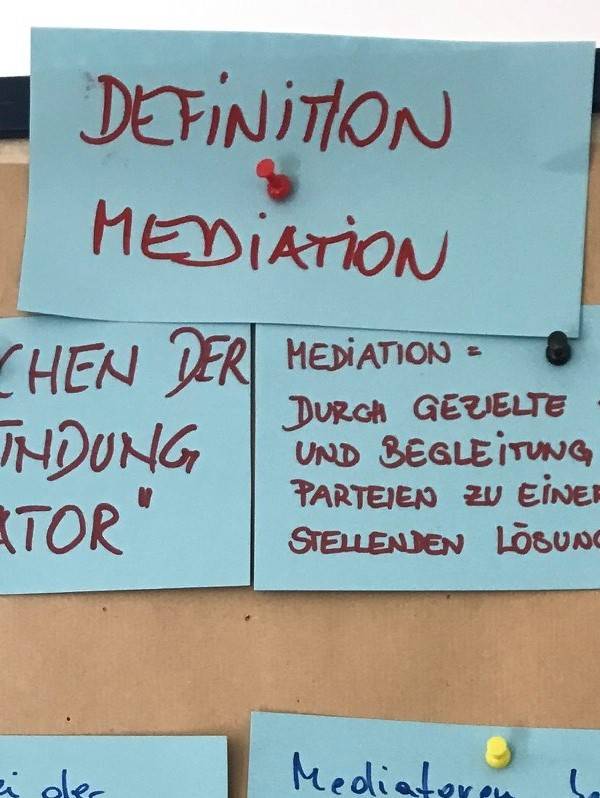 DEFINITION
MEDIATION
CHEN DER
INDUNG
ATOR"
MEDIATION =
DURCH GEZIELTE
UND BEGLEITUNG
PARTEIEN ZU EINER
STELLENDEN LÖSUNG
ei der
Mediatoren